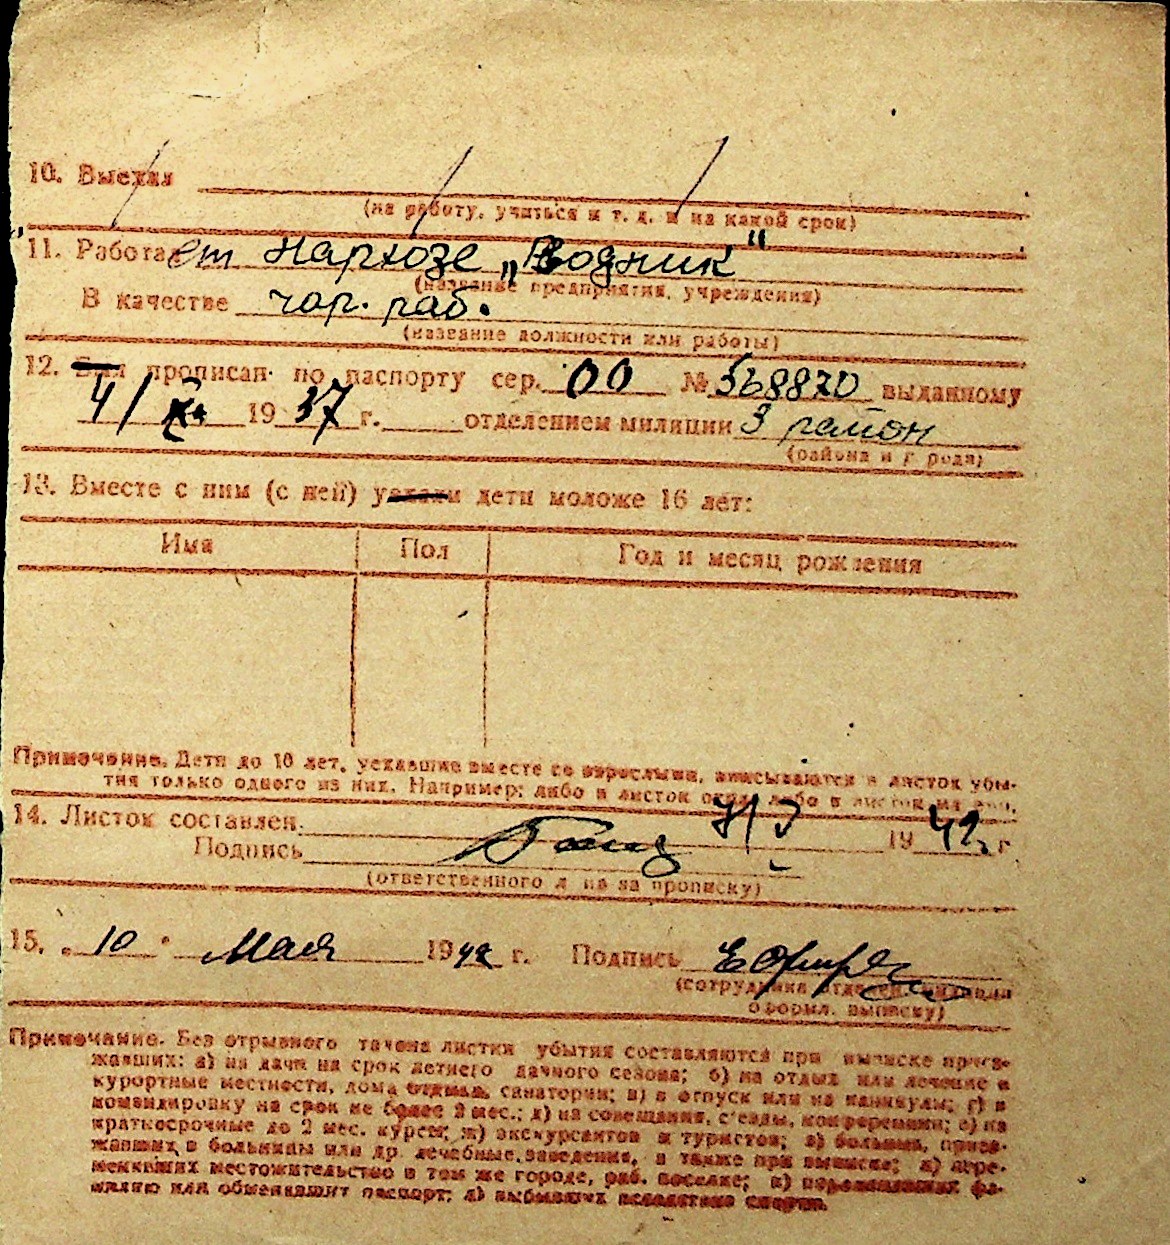 10. Выехал
(на работу, учиться и т. д. и на какой срок)
11. Работает Нархозе „Водник"
(название предприятия, учреждения)
В качестве чор. раб.
(название должности или работы)
12. Был прописан по паспорту сер. 00 № 568820 выданному
4/ 1937 г. отделением милиции 3 район
(района и города)
13. Вместе с ним (с ней) уехали дети моложе 16 лет:
Имя Пол Год и месяц рождения
Примечание. Дети до 16 лет, уехавшие вместе со взрослыми, вписываются в листок убы-
тия только одного из них. Например: либо в листок отца, либо в листок матери.
14. Листок составлен 1942 г
Подпись
(ответственного л на за прописку)
15. „10" Мая 1942 г. Подпись
(сотрудника отделен. милиции
оформл. выписку)
Примечание. Без отрывного талона листки убытия составляются при выписке приез-
жавших: а) на дачи на срок летнего дачного сезона; б) на отдых или лечение в
курортные местности, дома отдыха, санатории; в) в отпуск или на каникулы; г) в
командировку на срок не более 2 мес.; д) на совещания, с'езды, конференции; е) на
краткосрочные до 2 мес. курсы; ж) экскурсантов и туристов; з) больных, приез-
жавших в больницы или др. лечебные заведения, а также при выписке; и) пере-
менивших местожительство в том же городе, раб. поселке; к) переменивших фа-
милию или обменявших паспорт; л) выбывших вследствие смерти.